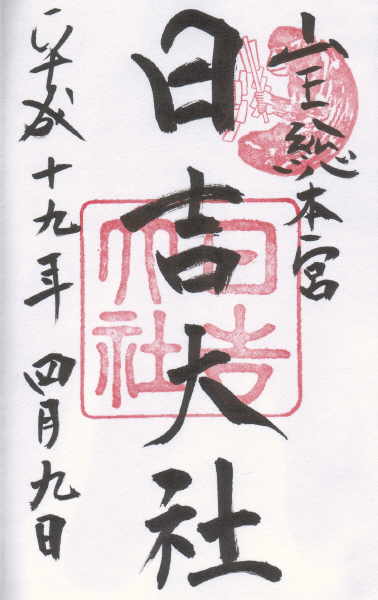 山王総本宮
日吉大社
日吉大社
平成十九年 四月九日